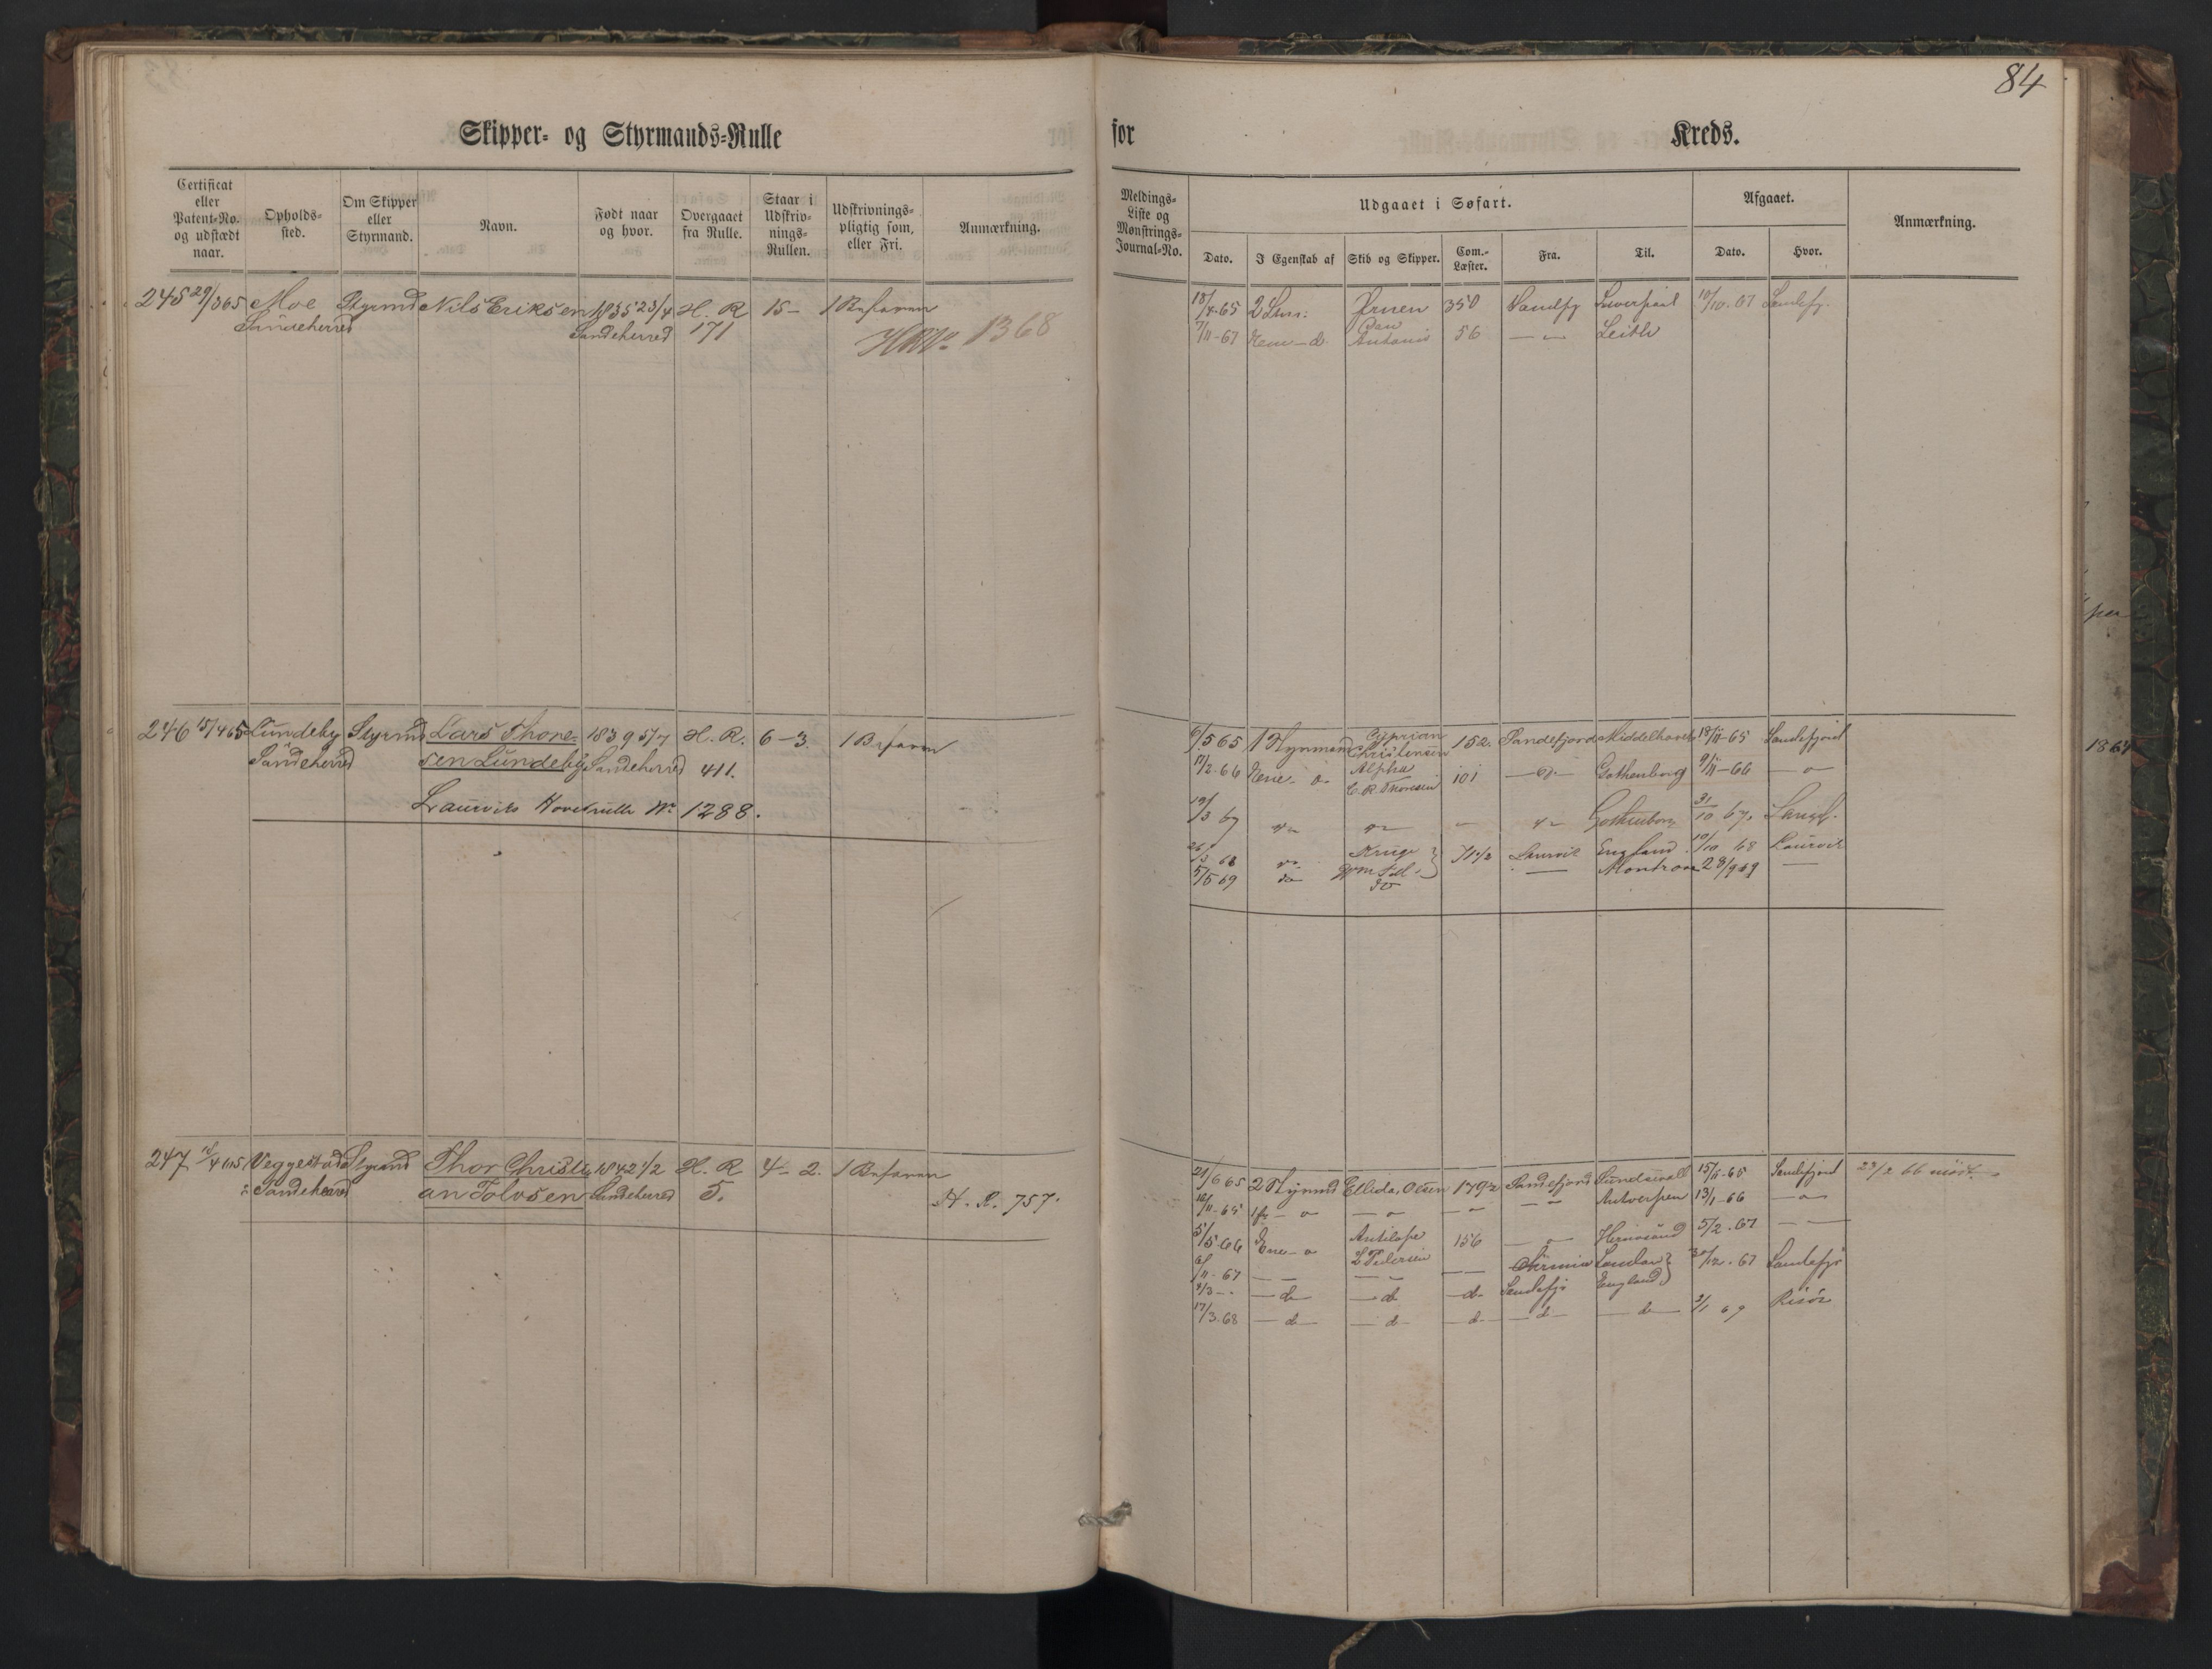 84
Skipper- og Styrmands-Rulle
for Kreds.
Certificat eller Patent-No. og udstædt naar.
Opholds-sted.
Om Skipper eller Styrmand.
Navn.
Født naar og hvor.
Overgaaet fra Rulle.
Staar i Udskriv-nings-Rullen.
Udskrivnings-pligtig som, eller Fri.
Anmærkning.
Meldings-Liste og Mønstrings-Journal-No.
Udgaaet i Søfart.
Dato.
I Egenskab af
Skib og Skipper.
Com.-Læster.
Fra.
Til.
Afgaaet.
Dato.
Hvor.
Anmærkning.
245 29/3 65 Moe Styrmd Nils Eriksen 1835 23/4 H. R. 15- 1 Befaren
Sandeherred Sandeherred 171 1368
18/4-65 2 Ørnen 350 Sandfj Liverpool 10/10-67 Sandefj.
7/11-67 56 Leith
246 15/4 65 Lundeby Styrmd Lars Thore- 1839 5/7 H. R. 6-3. 1 Befaren
Sandeherred sen Lundeby Sandeherred 411.
Laurviks Hovedrulle No 1288.
6/5 65 1 Styrmand Cyprian Christensen 152 Sandefjord Middelhavet 18/11-65 Sandefjord
17/2-66 Alpha 101 Gothenborg 9/11-66
19/3 67 Gothenborg 31/10 67. Sandf.
68 71 1/2 Laurvik England 10/10 68 Laurvik
5/5 69 do Montrose 28/9 69
247 4 65 Veggestad Styrmd Thor Christi- 1842 1/2 H. R. 4-2. 1 Befaren
Sandeherred an Tolvsen Sandeherred 5.
H. R. 757.
21/6 65 2 Styrmd Ellida, Olsen 179 1/2 Sandefjord Sundsvall 15/11-65 Sandefjord 23/2 66 mødt.
11-65 Antverpen 13/1-66
5/5-66 Antilope 156 Hernøsand 5/2-67
Pedersen
11-67 London 12-67 Sandefj
4/3 d d d Sandefj England
17/3-68 d d d d d 2/1 69 Risør
1867